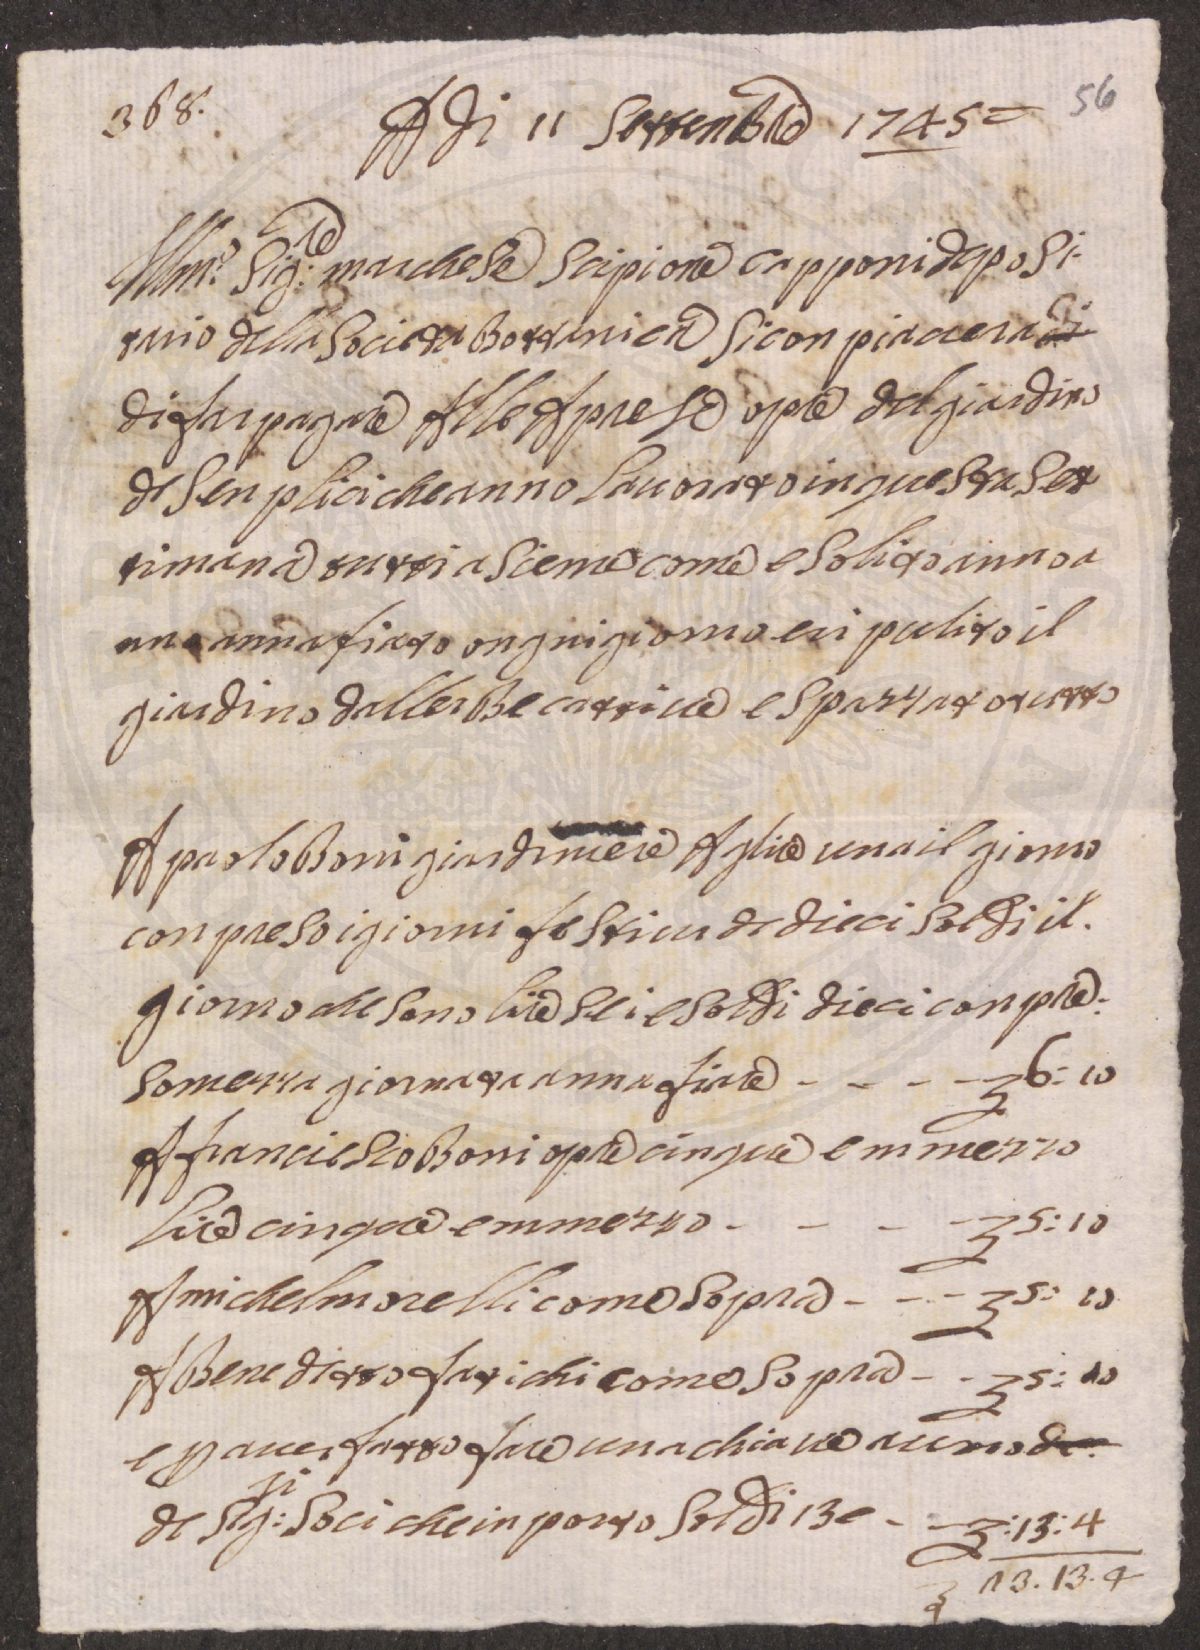 368. 56
A di 11 Settenbre 1745
Illmo: Sig:re marchese Scipione capponi deposi-
tario della Societa Bottanica Si conpiaccera
di far pagare Alle Aprese opre del giardino
de Senplici che anno lauorato in questa Set
timana tutti asieme come e Solito anno a
una annafiato ongni giorno eri pulito il
giardino dallerbe cattiue e Spazzato tutto
A paolo Boni giardiniere A lire una il giorno
conpreso i giorni festiui de dieci Soldi il.
giorno che sono lire Sei e Soldi dieci conpre:
So mezza giornata annafiare - - - - 6: 10
A franciesco Boni opre cinque emmezzo
lire cinque emmezzo - - - - 5: 10
A michel morelli come Sopra - - - 5: 10
A Benedetto fatichi come Sopra - - 5: 10
e p auer fatto fare una chiaue a uno de
de Sig:ri Soci che in porto Soldi 13 e - - :13:4
13.13.4